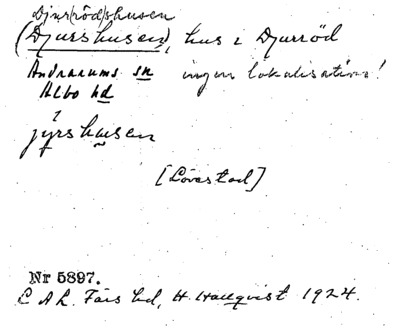 Djur(röd)shusen
(Djurshusen), hus i Djurröd
Andrarums sn ingen lokalisation!
Albo hd
jyrshusen
[Lövestad]
Nr 5897.
C A L. Färs hd, H. Hallqvist 1924.